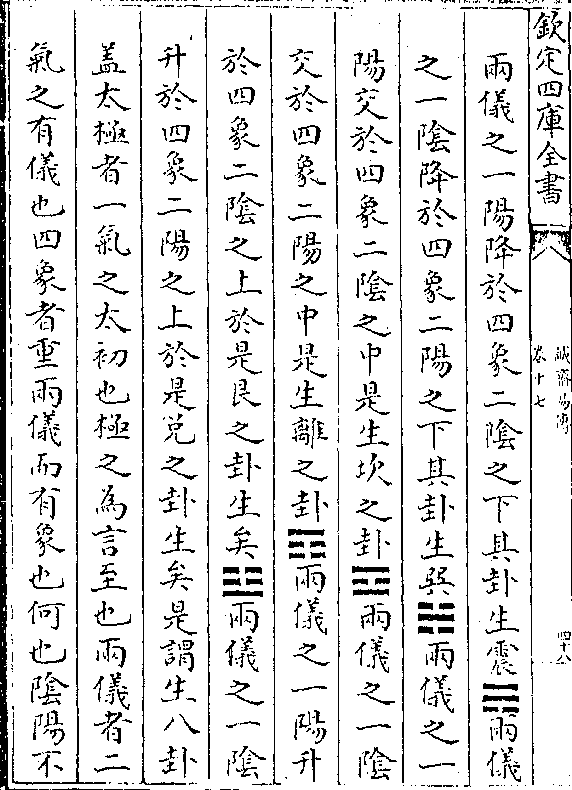 欽定四庫全書
誠齋易傳
卷十七
四十八
兩儀之一陽降於四象二陰之下其卦生震兩儀
之一陰降於四象二陽之下其卦生巽兩儀之一
陽交於四象二陰之中是生坎之卦兩儀之一陰
交於四象二陽之中是生離之卦兩儀之一陽升
於四象二陰之上於是艮之卦生矣兩儀之一陰
升於四象二陽之上於是兌之卦生矣是謂生八卦
蓋太極者一氣之太初也極之為言至也兩儀者二
氣之有儀也四象者重兩儀而有象也何也陰陽不